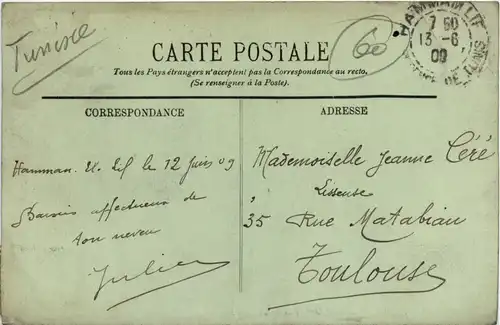 Tunisie
60
HAMMAM LIF
7 50
13 - 6
09
DE TUNIS
CARTE POSTALE
Tous les Pays étrangers n'acceptent pas la Correspondance au recto.
(Se renseigner à la Poste).
CORRESPONDANCE
Hamman. el Lif le 12 Juin 09
Baisers affectueux de
ton neveu
Julien
ADRESSE
Mademoiselle Jeanne Céré
Lisseuse
35 Rue Matabiau
Toulouse